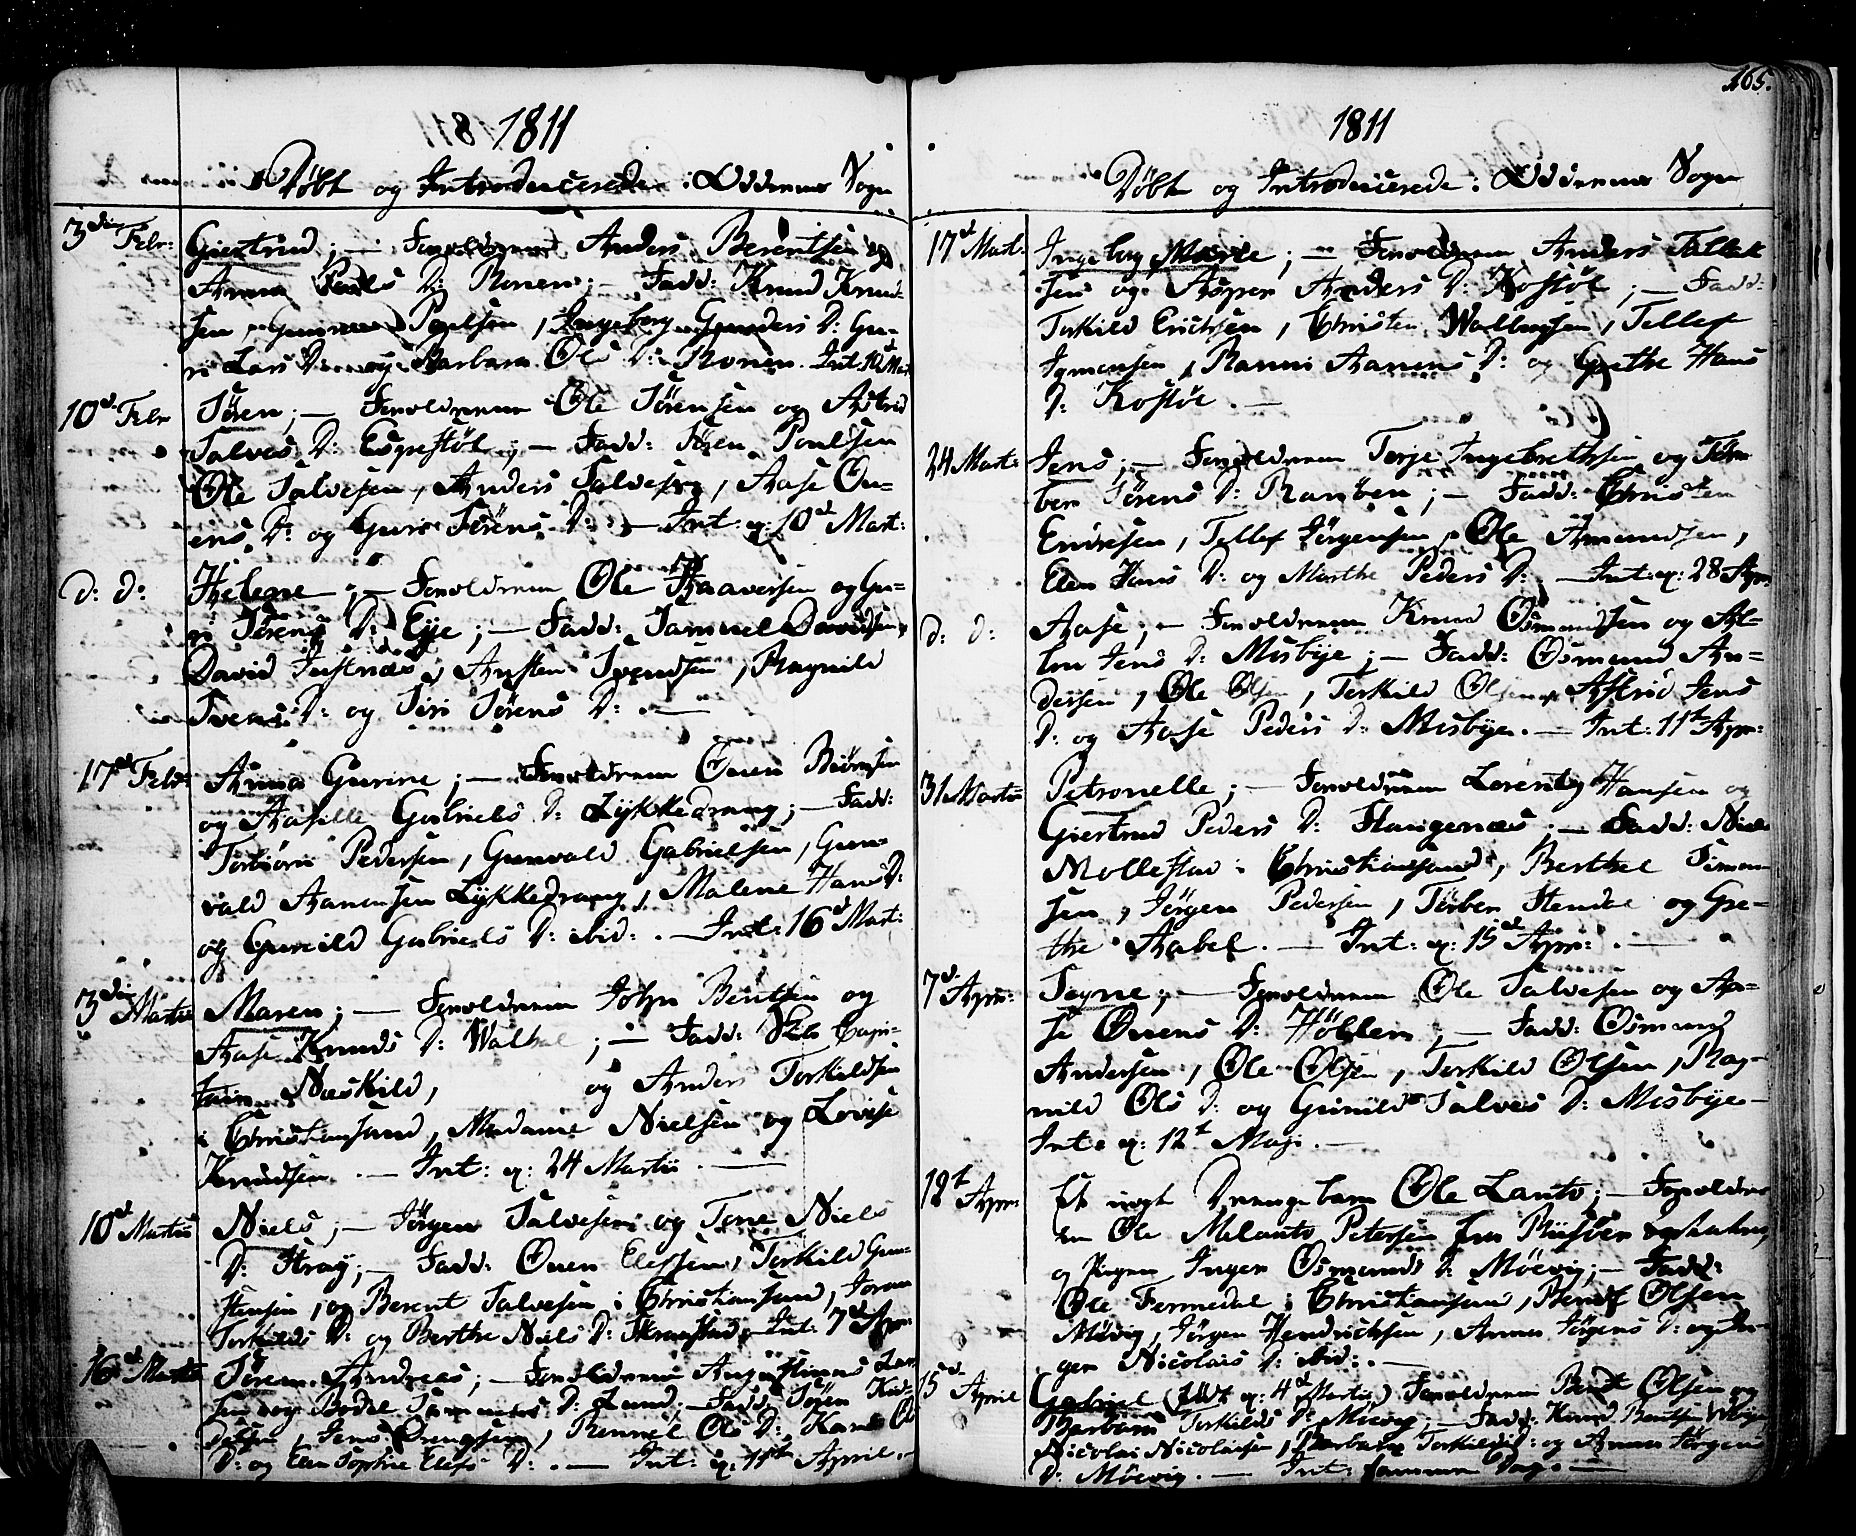 1811
Døbt og Introducerede i Oddernes Sogn
3die Febr: Giertrud; — Forældrene Anders Berentsen og
Anna Pouls D: Ronen; — Fadd: Knud Knud-
sen, Gunnar Poulsen, Ingeborg Gunders D: Gu-
ri Lars D: og Barbara Ols D: Ronen. Int: 10 Mart
10d Febr Søren; — Forældrene Ole Sørensen og Astrid
Salves D: Egrestøl; — Fadd: Søren Poulsen
Ole Salvesen, Anders Salvesen, Aase On-
ens D: og Guri Sørens D: — Int: q: 10d Mart:
d: d: Helene; — Forældrene Ole Haaversen og Gu-
ri Sørens D: Eye; — Fadd: Samuel Davidsen,
David Justnæs, Austen Svendsen, Ragnild
Svens D: og Siri Sørens D: . —
17d Febr: Anna Gurine; — Forældrene Onen Biørnsen
og Aasille Gabriels D: Lykkedrang; — Fadd:
Torbiørn Pedersen, Gunvald Gabrielsen, Gun-
vald Aanensen Lykkedrang, Malene Hans D:
og Gunild Gabriels D: ibid: . — Int: 16d Mart:
3die Martii Maren; — Forældrene John Bentsen og
Aase Knuds D: Walhal; — Fadd: Skibs Capi-
tain Næskild, og Anders Torkildsen
i Christiansand, Madame Nielsen og Lovise
Knudsen. — Int: q: 24 Martii. —
10d Martii Niels; — Jørgen Salvesen og Tone Niels
D: Stray; — Fadd: Onen Elefsen, Torkild Gun-
stensen, og Berent Salvesen i Christiansand, Joran
Torkilds D: og Berthe Niels D: Int: 7d Apr:
16d Martii Søren Andreas; — Forældrene Augustinus Lar-
sen og Bodel D: Lund; — Fadd: Søren
Jens Drengsen, Rennel Ols D: Karen Ol
D: og Elen Sophie Elefs D: . — Int: q: 11th April. —
165.
1811
Døbt og Introducerede i Oddernes Sogn
17d Mart: Ingeborg Marie; — Forældrene Anders Tallak
sen og Asper Anders D: Kostøl; — Fadd:
Torkild Erichsen, Christen Wallugsen, Tellef
Igmensen, Ranni Aanens D: og Grethe Hans
D: Kostøl. —
24 Mart: Jens; — Forældrene Terje Ingebrethsen og Tor-
ber Sørens D: Rarøben; — Fadd: Christen
Endresen, Tellef Jørgensen, Ole Amundsen,
Elen Hans D: og Marthe Peders D: — Int: q: 28 Apr:
d: d: Aase; — Forældrene Knud Osmundsen og Al-
lou Jens D: Mesbye; — Fadd: Osmund An-
dersen, Ole Olsen, Torkild Olsen, Astrid Jens
D: og Aase Peders D: Mesbye. — Int: 11th Apr:
31 Martii Petronelle; — Forældrene Lorentz Hansen og
Giertrud Peders D: Flangenæs; — Fadd: Niels
Mollestad i Christiansand, Berthel Simon-
sen, Jørgen Pedersen, Torber Stendel og Gre-
the Aabel. — Int: q: 15d Apr: . —
7d Apr: Sogne; — Forældrene Ole Salvesen og Aa-
se Onens D: Høllen; — Fadd: Osmund
Andersen, Ole Olsen, Torkild Olsen, Rag-
nild Ols D: og Gunild Salves D: Mesbye —
Int: q: 12t Maj. —
12t Apr: Et uægt Drengebarn Ole Lants; — Forældre-
ne Ole Melants Petersen fra
og Pigen Inger Osmunds D: Møevig; — Fadd:
Ole Fermedal i Christiansand, Bendt Olsen
Møvig, Jørgen Hendrichsen, Anna Jørgens D: og In-
ger Nicolais D: ibid: . —
15d April Gabriel (født q: 4d Martii) Forældrene Bendt Olsen og
Barbara Torkilds D: Møevig; — Fadd: Knud Bentsen
Nicolai Nicolaisen, Barbara Torkilds D: og Anna Jørgens
D: Møevig. — Int: samme Dag. —